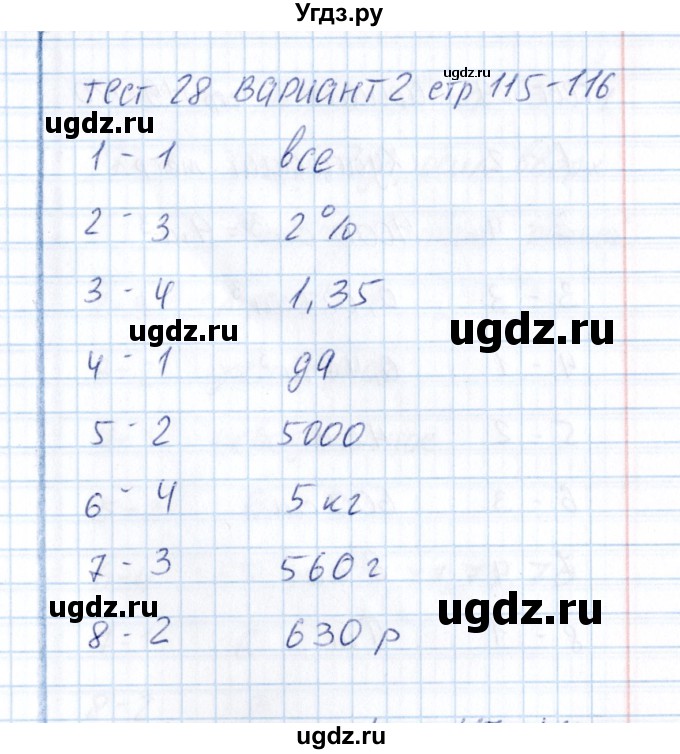 Угдз.ру
тест 28 вариант 2 стр 115-116
ugdz.ru
ugdz.ru
1 - 1 все
2 - 3 2%
3 - 4 1,35
ugdz.ru
ugdz.ru
4 - 1 да
5 - 2 5000
6 - 4 5 кг
7 - 3 560 г
ugdz.ru
ugdz.ru
8 - 2 630 р
ugdz.ru